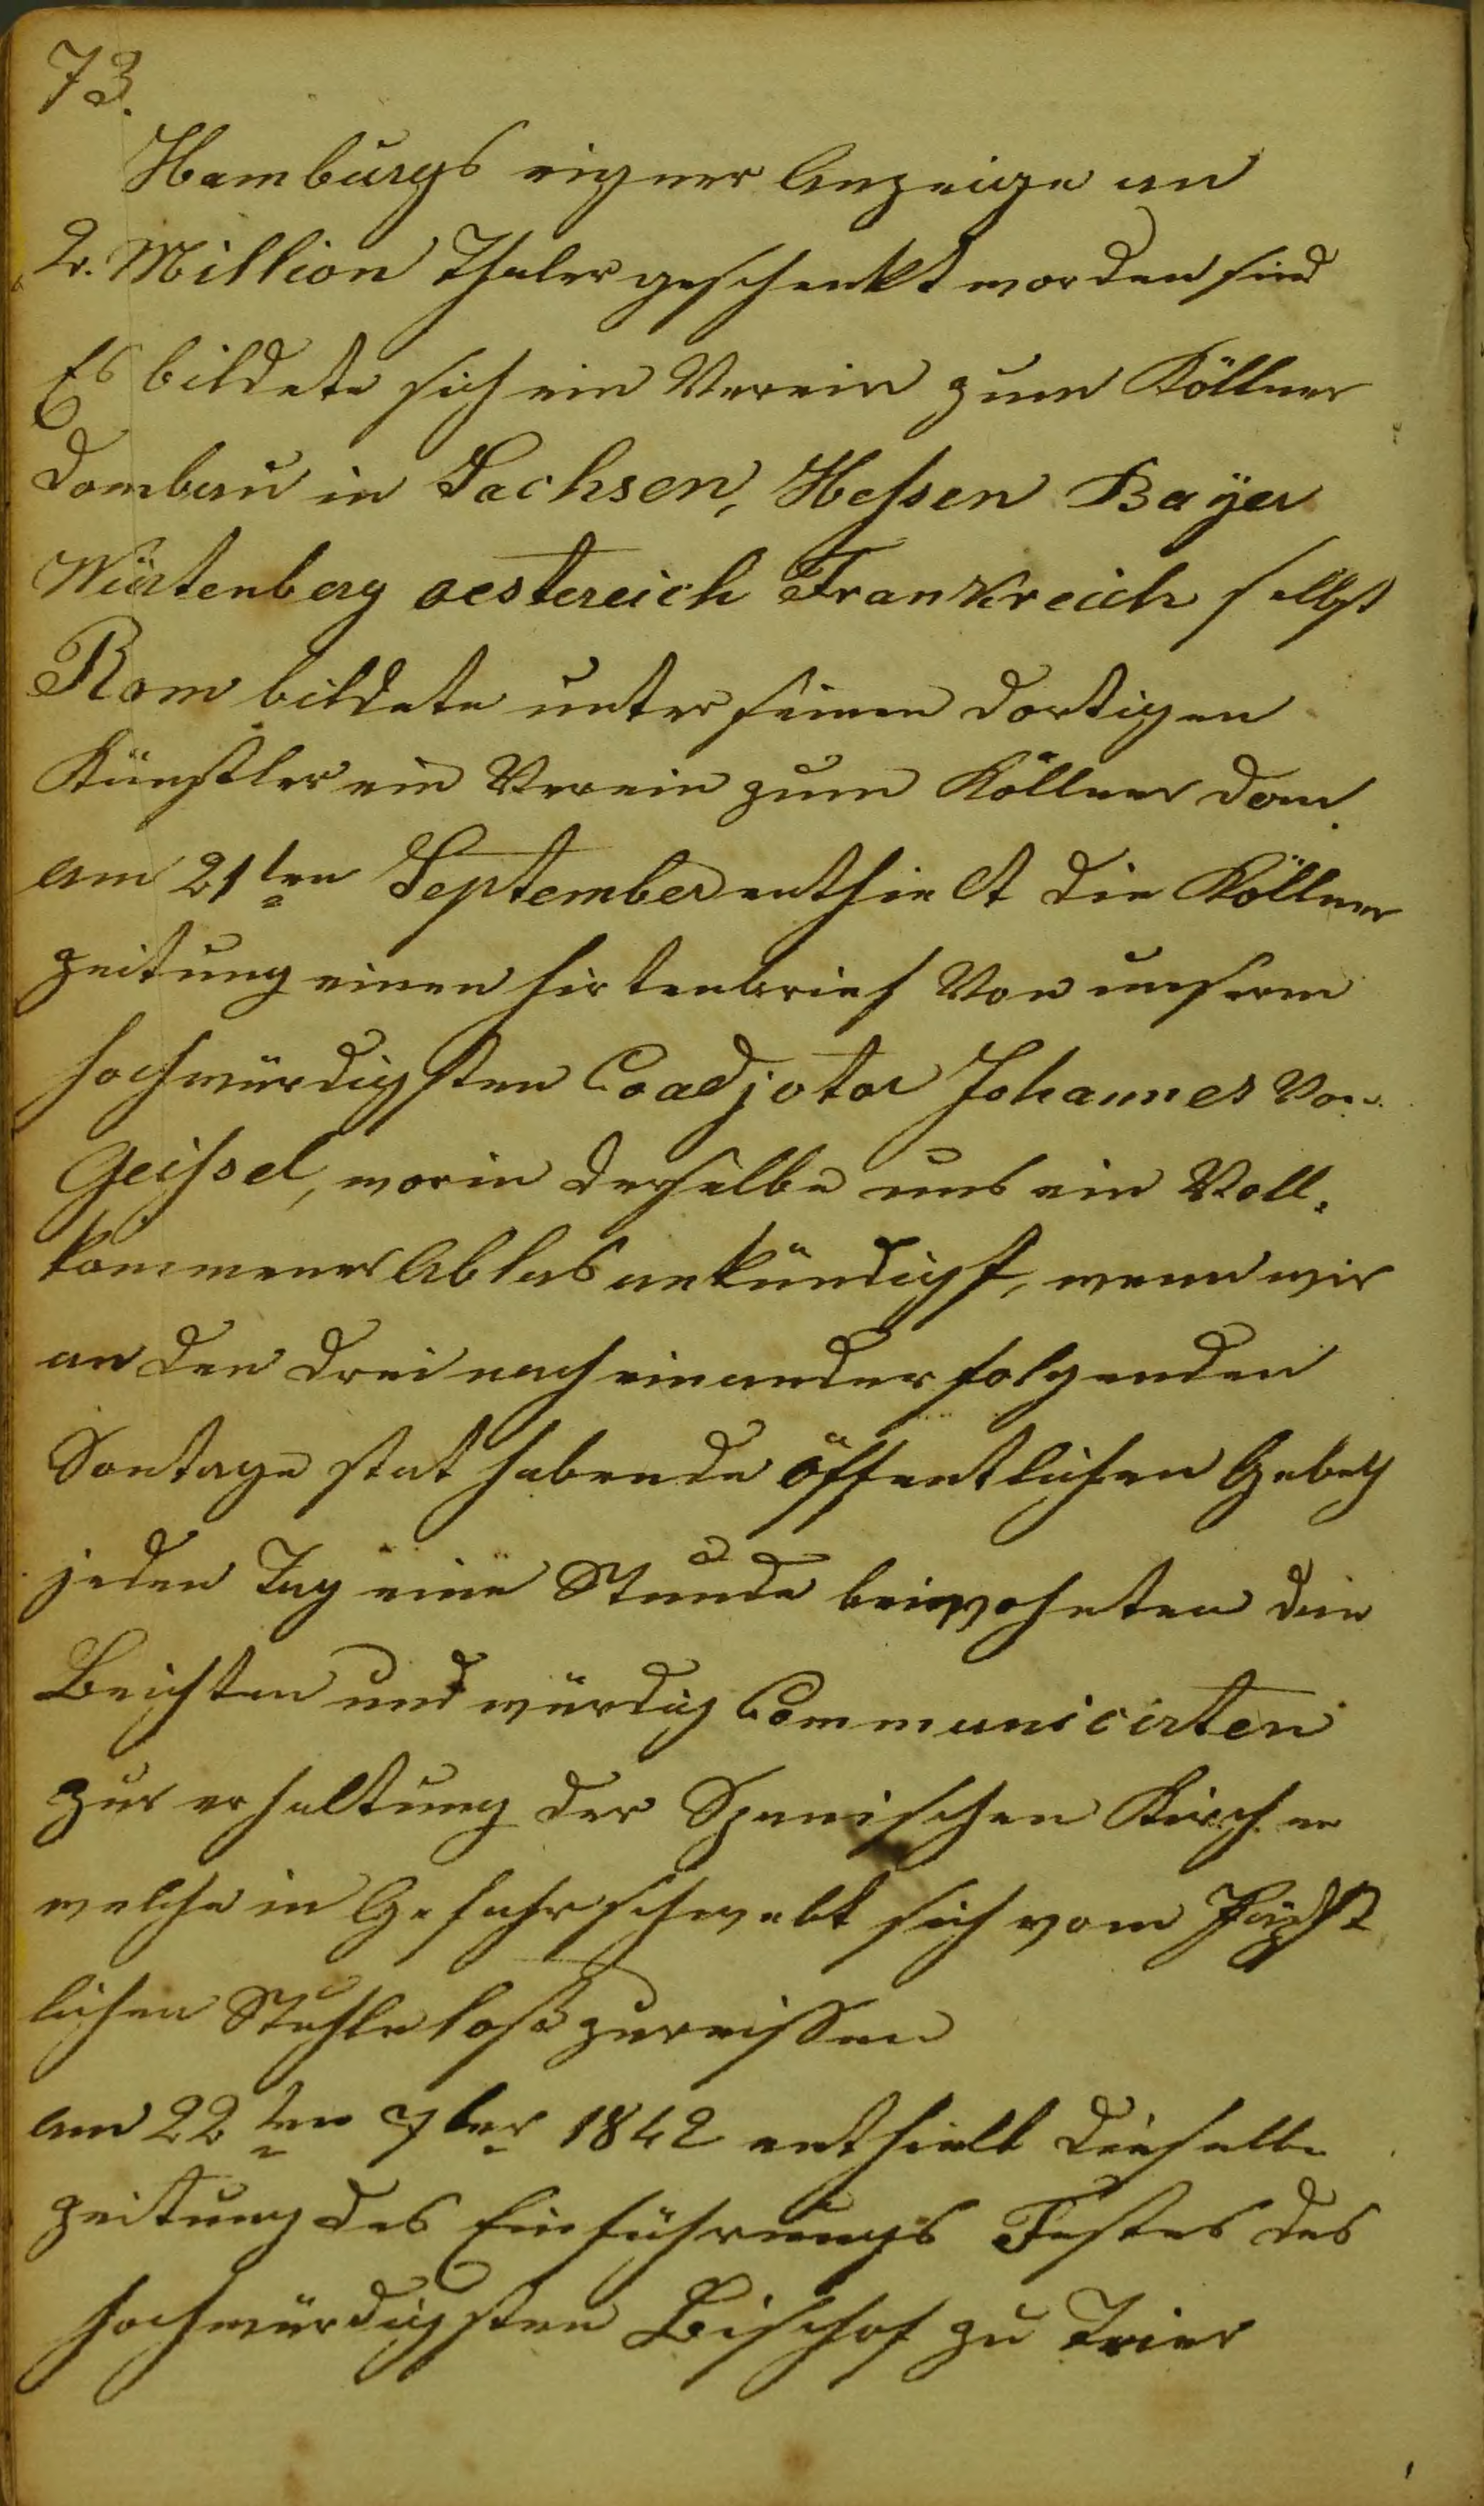 73.
Hamburgs eigner Anzeige an
2. Million Thaler geschenkt worden sind
Es bildete sich ein Verein zum Köllner
Dombau in Sachsen, Hessen Bayer
Würtenberg oestereich Frankreich selbst
Rom bildete unter seinen dortigen
Künstler ein Verein zum Köllner Dom.
am 21ten September enthielt die Köllner
Zeitung einen Hirtenbrief Von unserm
Hochwürdigsten Coadjotor Johannes Von
Geissel, worin derselbe uns ein Voll.
kommener Ablas ankündigt, wenn wir
an den drei nach einander folgenden
Sontage stat habende öffentlichen Gebeth
jeden Tag eine Stunde beiwohnten die
Beichten und würdig Communicirten
zur erhaltung der Spanischen Kirchen
welche in Gefahr schwebt sich vom Päpst
lichen Stuhle loszureissen
am 22ten 7ber 1842 enthielt dieselbe
Zeitung das Einführungs Festes des
Hochwürdigsten Bischof zu Trier